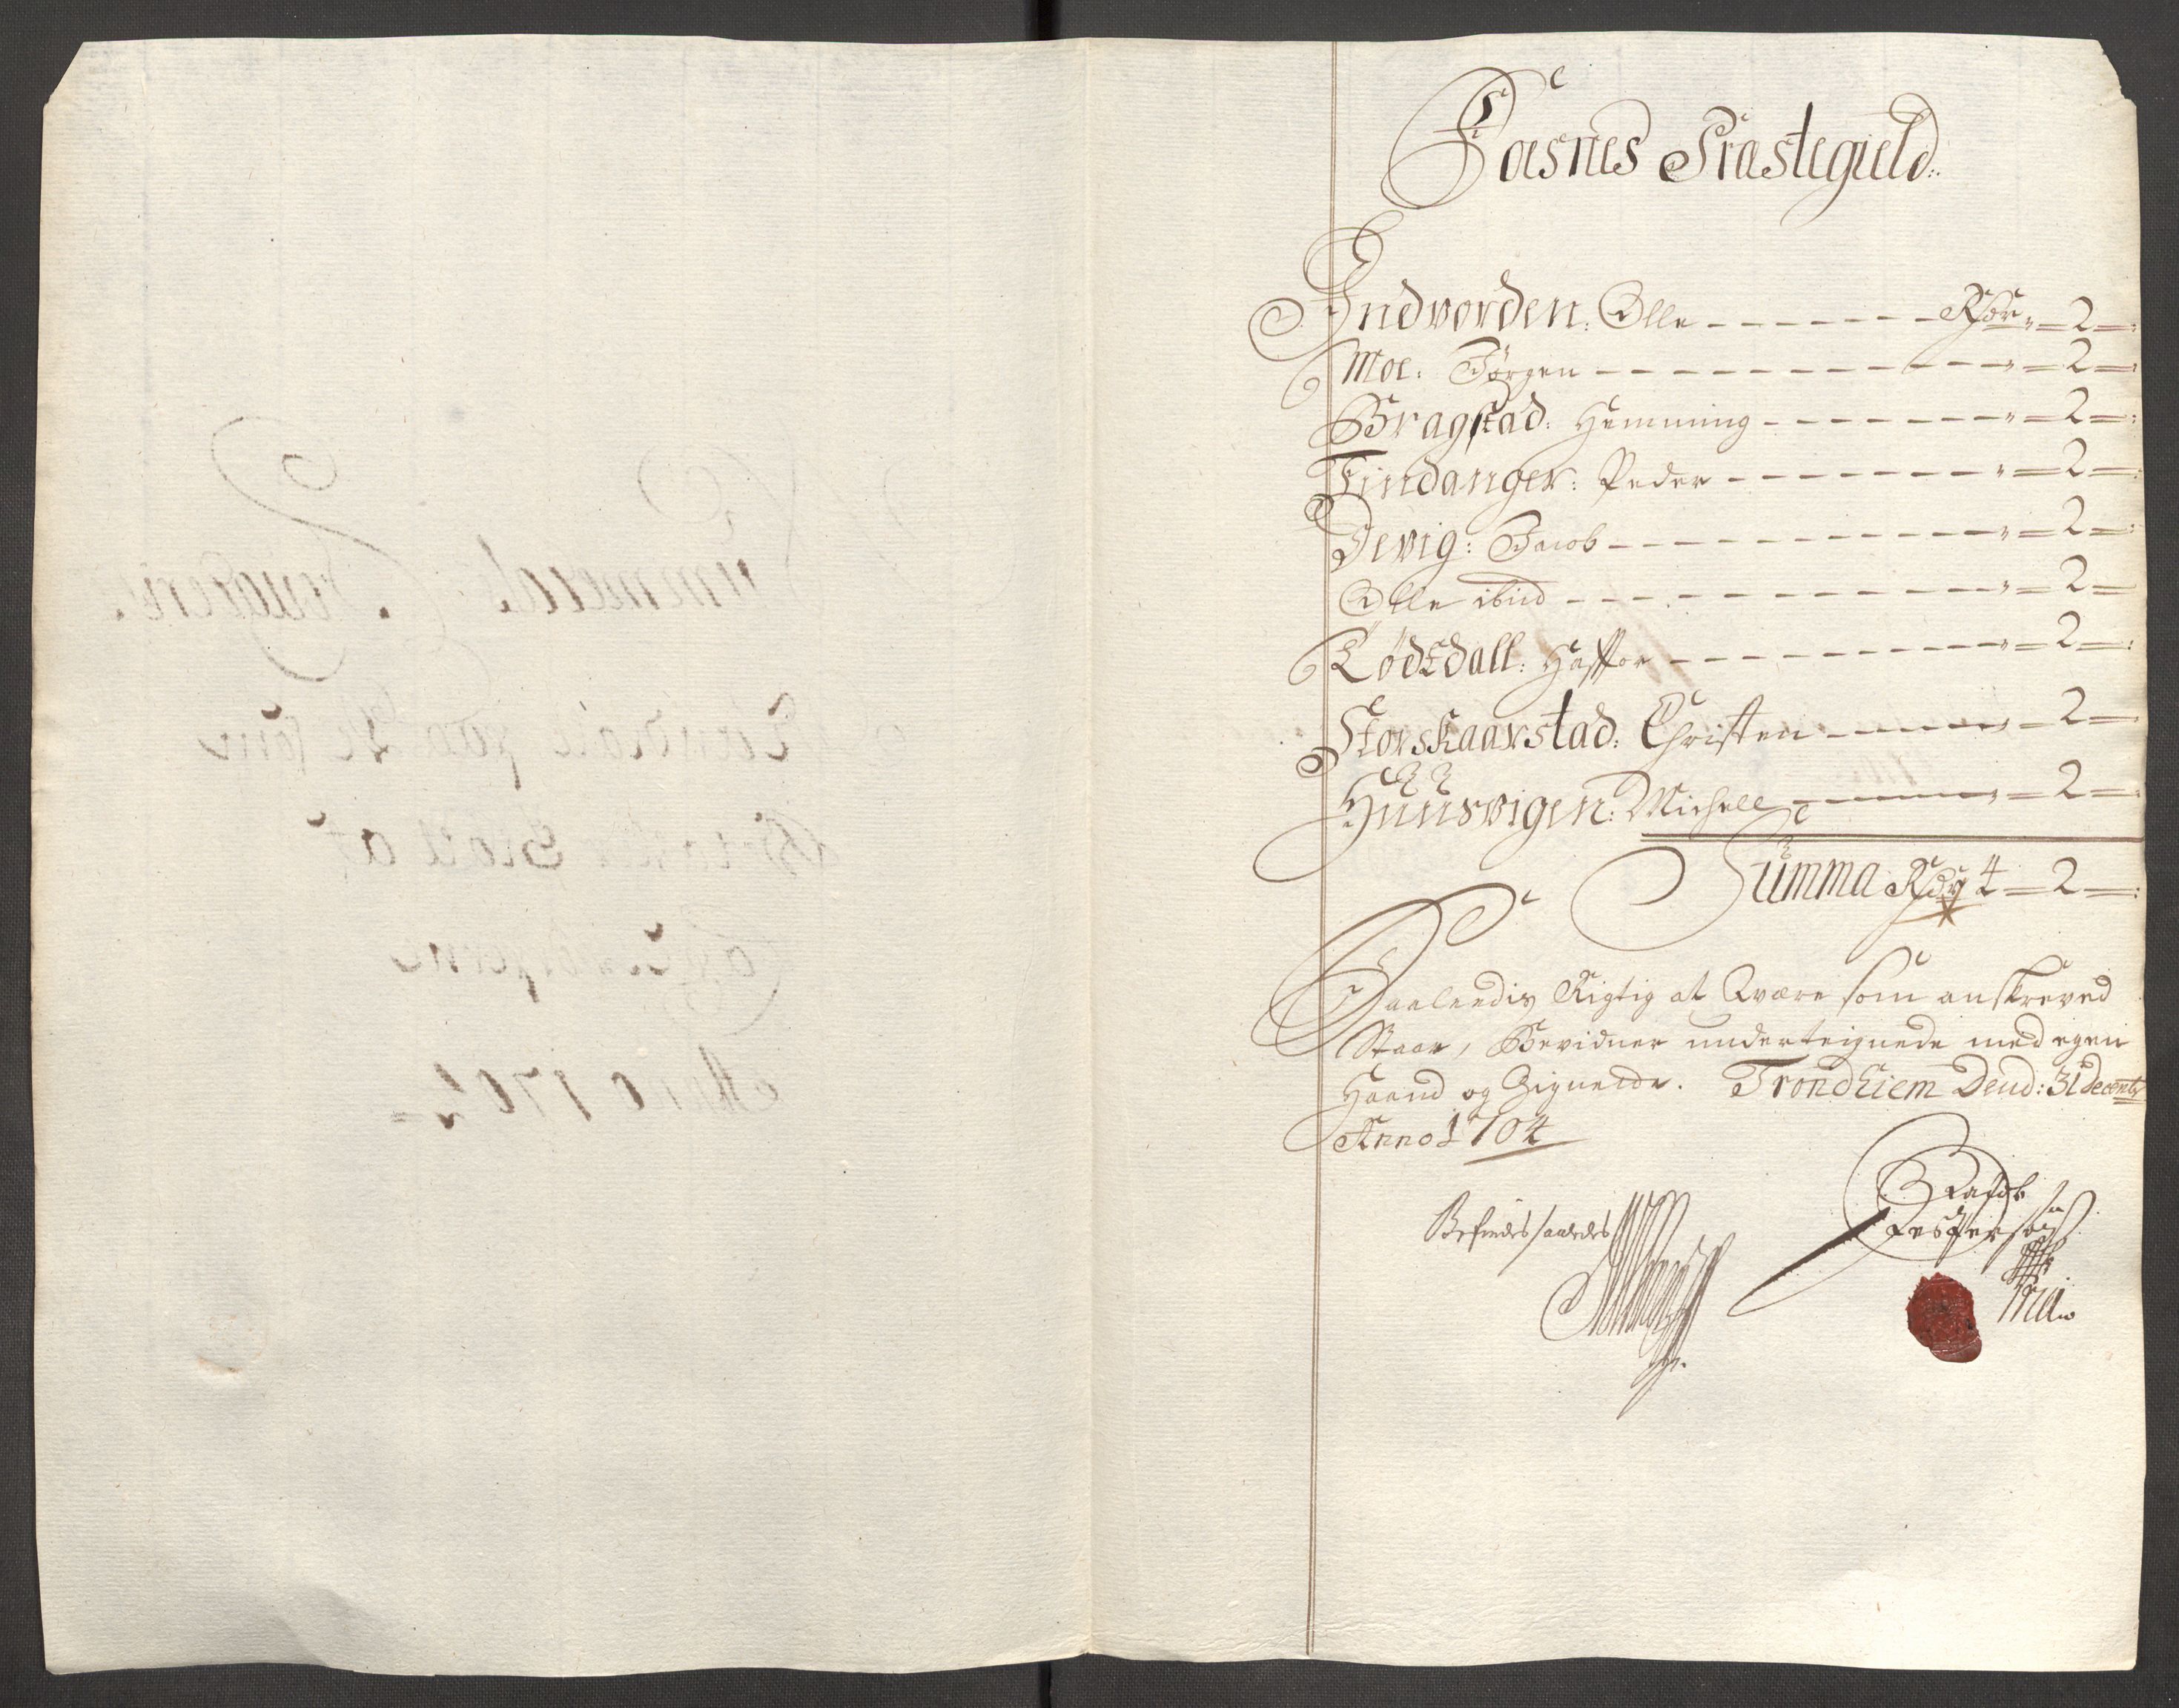 Foesnes Præstegield:
Indvorden: Olle - - - - - - - Rdr „ = 2 =
Moe: Jørgen - - - - - - - - - - „ = 2 =
Bragstad: Hemming - - - - - - - „ = 2 =
Findanger: Peder - - - - - - - „ = 2 =
Devig: Jacob - - - - - - - - - „ = 2 =
Olle ibid - - - - - - - - - - „ = 2 =
Lødsdall: Haffor - - - - - - - - „ = 2 =
Storskaarstad: Christen - - - - „ = 2 =
Huusvigen: Michell - - - - - „ = 2 =
Summa Rdr 4 = 2 =
Saaleedis Rigtig at Være som anskreved
Staar, Bevidner underteignede med egen
Haand og Zignette. Trondhiem Dend: 31 Decembr
Anno 1704
Befindes saaledes
Jespersøn
mia